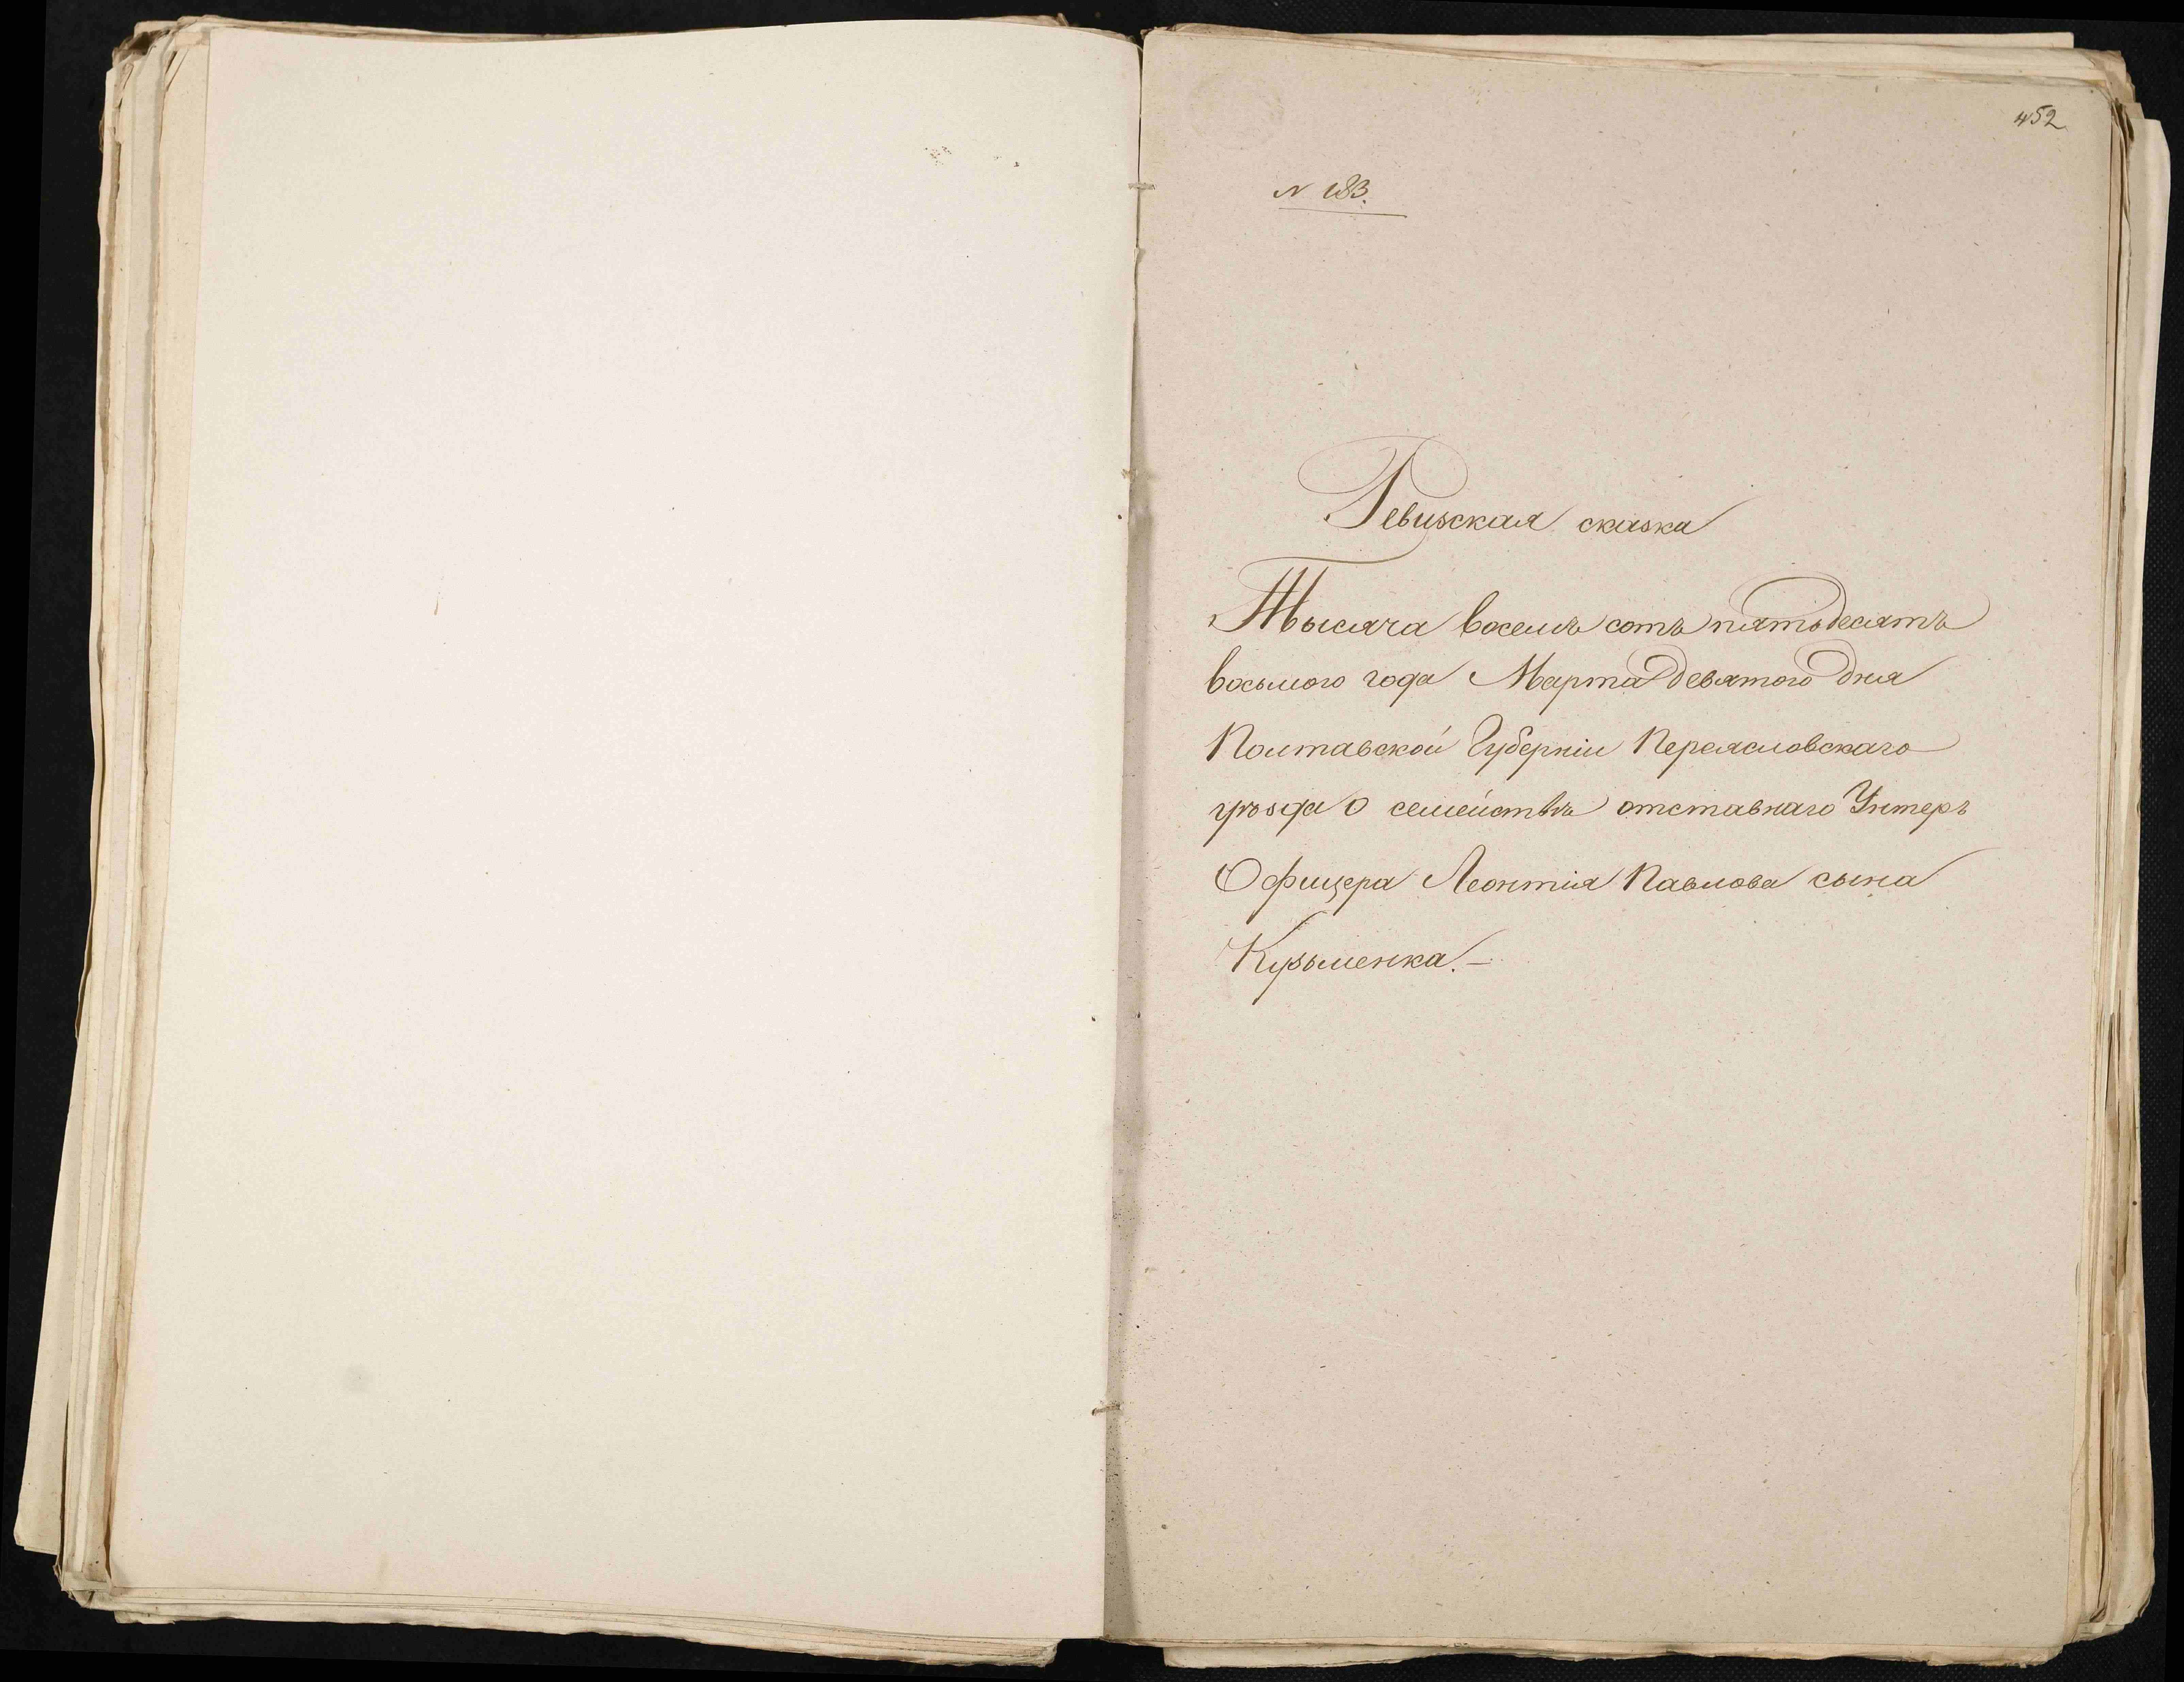 452
N 183.
Ревизская сказка
Тысяча восемъ сотъ пятьдесятъ
восьмого года Марта девятого дня
Полтавской Губерніи Переясловскаго
уѣзда О семействѣ отставнаго Унтеръ
Офицера Леонтія Павлова сына
Кузьменка.-